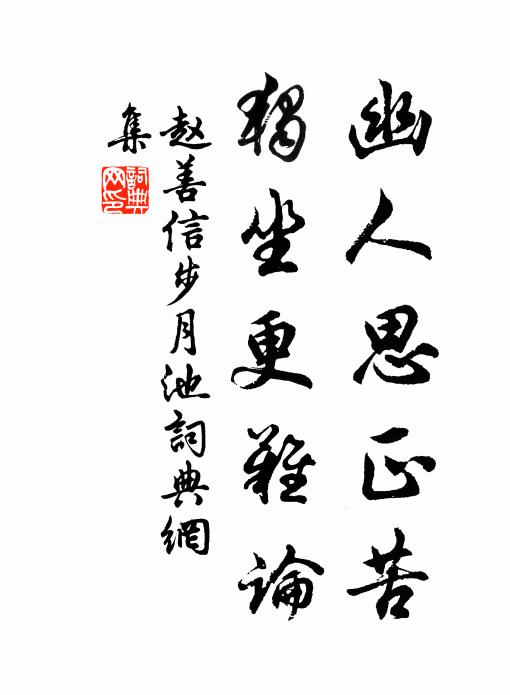 幽人思正苦
獨坐更難論
赵善信步月池詞典網
集
詞典
网印